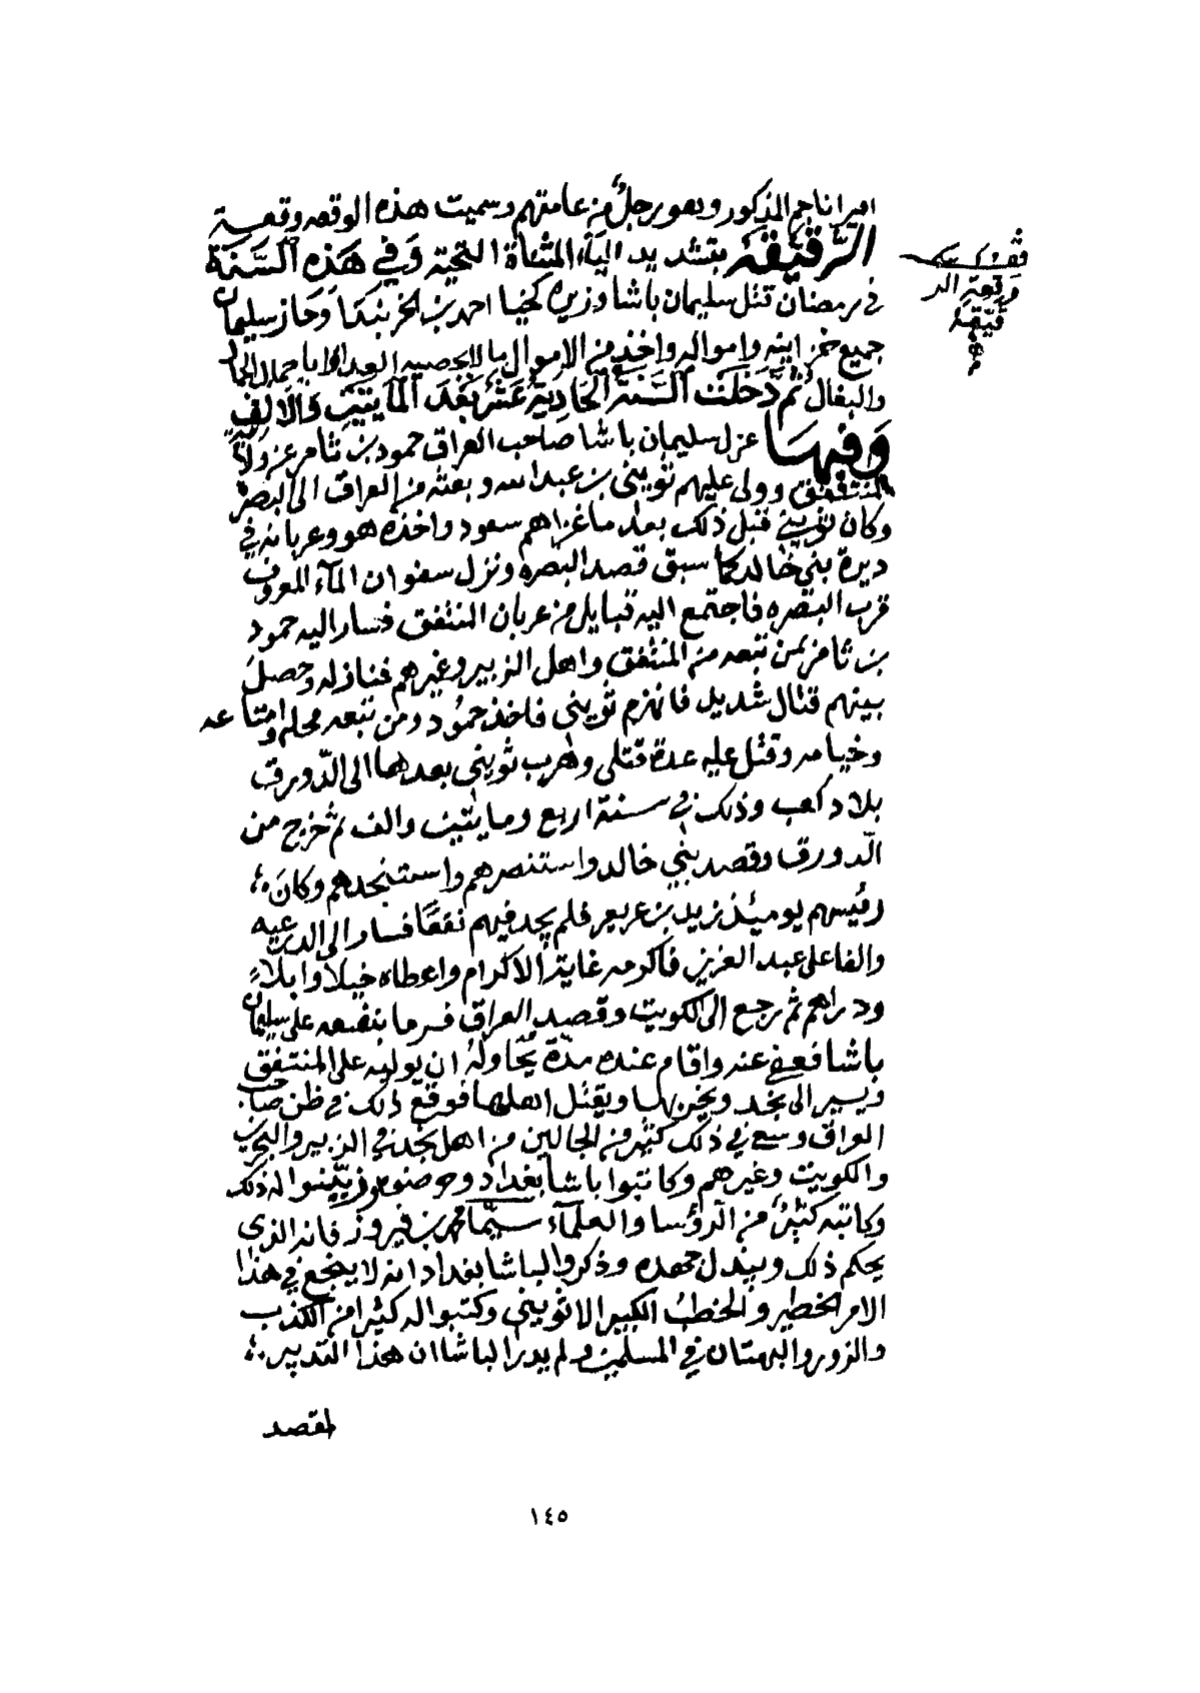 اميرا ناجم المذكور وهو رجلٌ من عامتهم وسميت هذه الوقعه وقعة
الرَّقَيّقَهْ بتشديد الياء المثناة التحتية وَفي هَذِهِ السَّنَة
في رمضان قتل سليمان باشا وزيره كخيا احمد بن الخربندا وَحَاز سليمان
جميع خزاينه وامواله واخذ من الاموال ما لا يحصيه العد
والبغال ثُمَّ دَخَلَت السَّنَةُ الحَادِيةُ عَشَر بَعْدَ المَايَتَيْن وَالالِف
وَفِيهَا عزل سليمان باشا صاحب العراق حمود بن ثامر عزولاً
المنتفق وولى عليهم ثويني بن عبدالله وبعثه من العراق الى البصره
وكان ثويني قبل ذلك بعد ما غزاهم سعود واخذه هو وعربانه في
ديرة بني خالد كما سبق قصد البصره ونزل سفوان المآء المعروف
قرب البصره فاجتمع اليه قبايل من عربان المنتفق فسار اليه حمود
بن ثامر بمن تبعه من المنتفق واهل الزبير وغيرهم فنازله وحصل
بينهم قتال شديد فانهزم ثويني فاخذ حمُود ومن تبعه محله وامتاعه
وخيامه وقتل عليه عدة قتلى وهرب ثويني بعدها الى الدّورق
بلاد كعب وذلك في سنة اربع ومايتين والف ثم خرج من
الدورق وقصد بني خالد واستنصرهم واستنجدهم وكانَ
رئيسهم يومئذ زيد بن عريعر فلم يجد فيهم نفعًا فسار الى الدرعيه
والفا على عبد العزيز فاكرمه غاية الاكرام واعطاه خيلاً وابلاً
ودراهم ثم رجع الى الكويت وقصد العراق فرما بنفسه على سليمان
باشا فعفى عنه واقام عنده مدّة يحاولهُ ان يوليه على المنتفق
ويسير الى نجد ويخربها ويقتل اهلها فوقع ذلك في ظن صاحب
العراق وسع في ذلك كثير من الجالين من اهل نجد في الزبير والبحرين
والكويت وغيرهم وكاتبوا باشا بغداد وحرضوه وزيّنوا له ذلك
وكاتبه كثيرٌ من الرّؤسا والعلمآء سيَّما محمد بن فيروز فانه الذي
يحكم ذلك ويبذل جهده وذكروا لباشا بغداد انه لا ينجع في هذا
الامر الخطير والخطب الكبير الا ثويني وكتبوا له كثيرا من الكذب
والزور والبهتان في المسلمين ولم يدر الباشا ان هذا التدبير
لقصد
وقعة الر
قيّقه
١٤٥